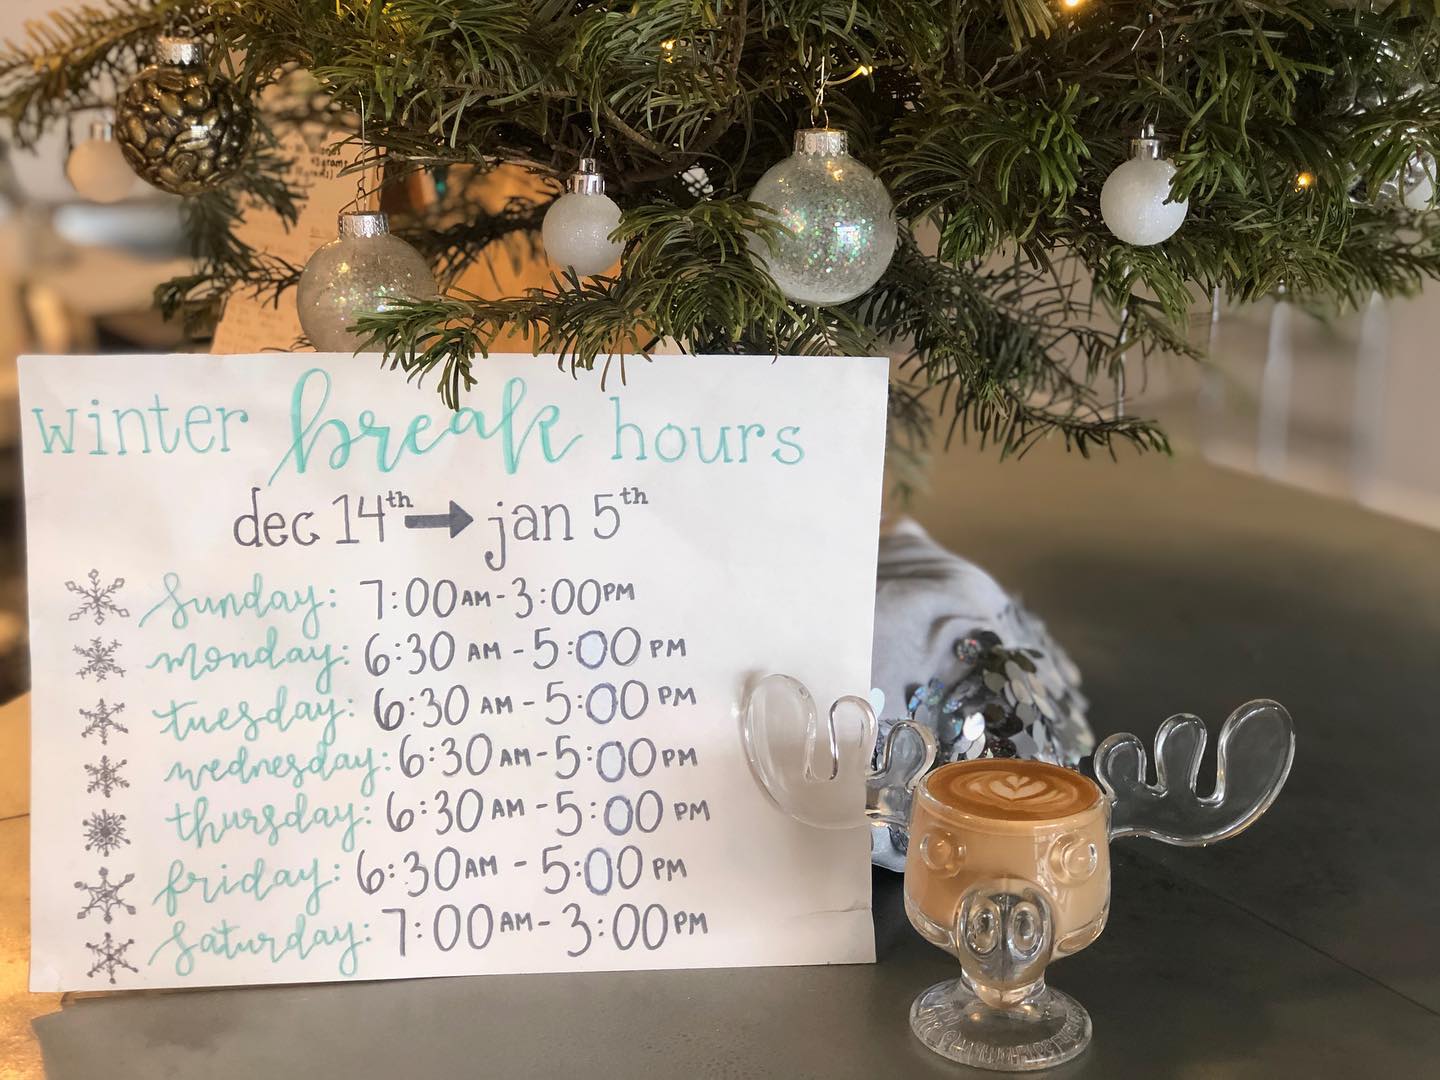 winter break hours
dec 14th → jan 5th
sunday: 7:00 AM - 3:00 PM
monday: 6:30 AM - 5:00 PM
tuesday: 6:30 AM - 5:00 PM
wednesday: 6:30 AM - 5:00 PM
thursday: 6:30 AM - 5:00 PM
friday: 6:30 AM - 5:00 PM
saturday: 7:00 AM - 3:00 PM